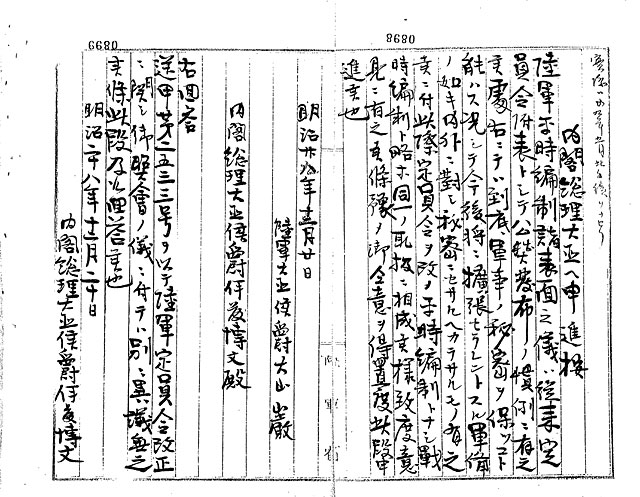 内閣総理大臣ヘ申進按
陸軍平時編制諸表面之儀ハ従来定
員令附表トシテ公然発布ノ慣例ニ有之
候処右ニテハ到底軍事ノ秘密ヲ保ツコト
能ハス況シテ今後将ニ拡張セラレントスル軍備
ノ如キ内外ニ対シ秘密ニセサルヘカラサルモノ有之
候ニ付此際定員令ヲ改メ平時編制トナシ戦
時編制ト略ホ同一ノ取扱ニ相成候様致度意
見ニ有之候条予メ御含意ヲ得置度此段申
進候也
明治廿八年十二月廿日
陸軍大臣侯爵大山巌
内閣総理大臣侯爵伊藤博文殿
右回答
送甲第二五三三号ヲ以テ陸軍定員令改正
ニ関シ御照会ノ儀ニ付テハ別ニ異議無之
候条此段及回答候也
明治二十八年十二月二十日
内閣総理大臣侯爵伊藤博文
0898
0899